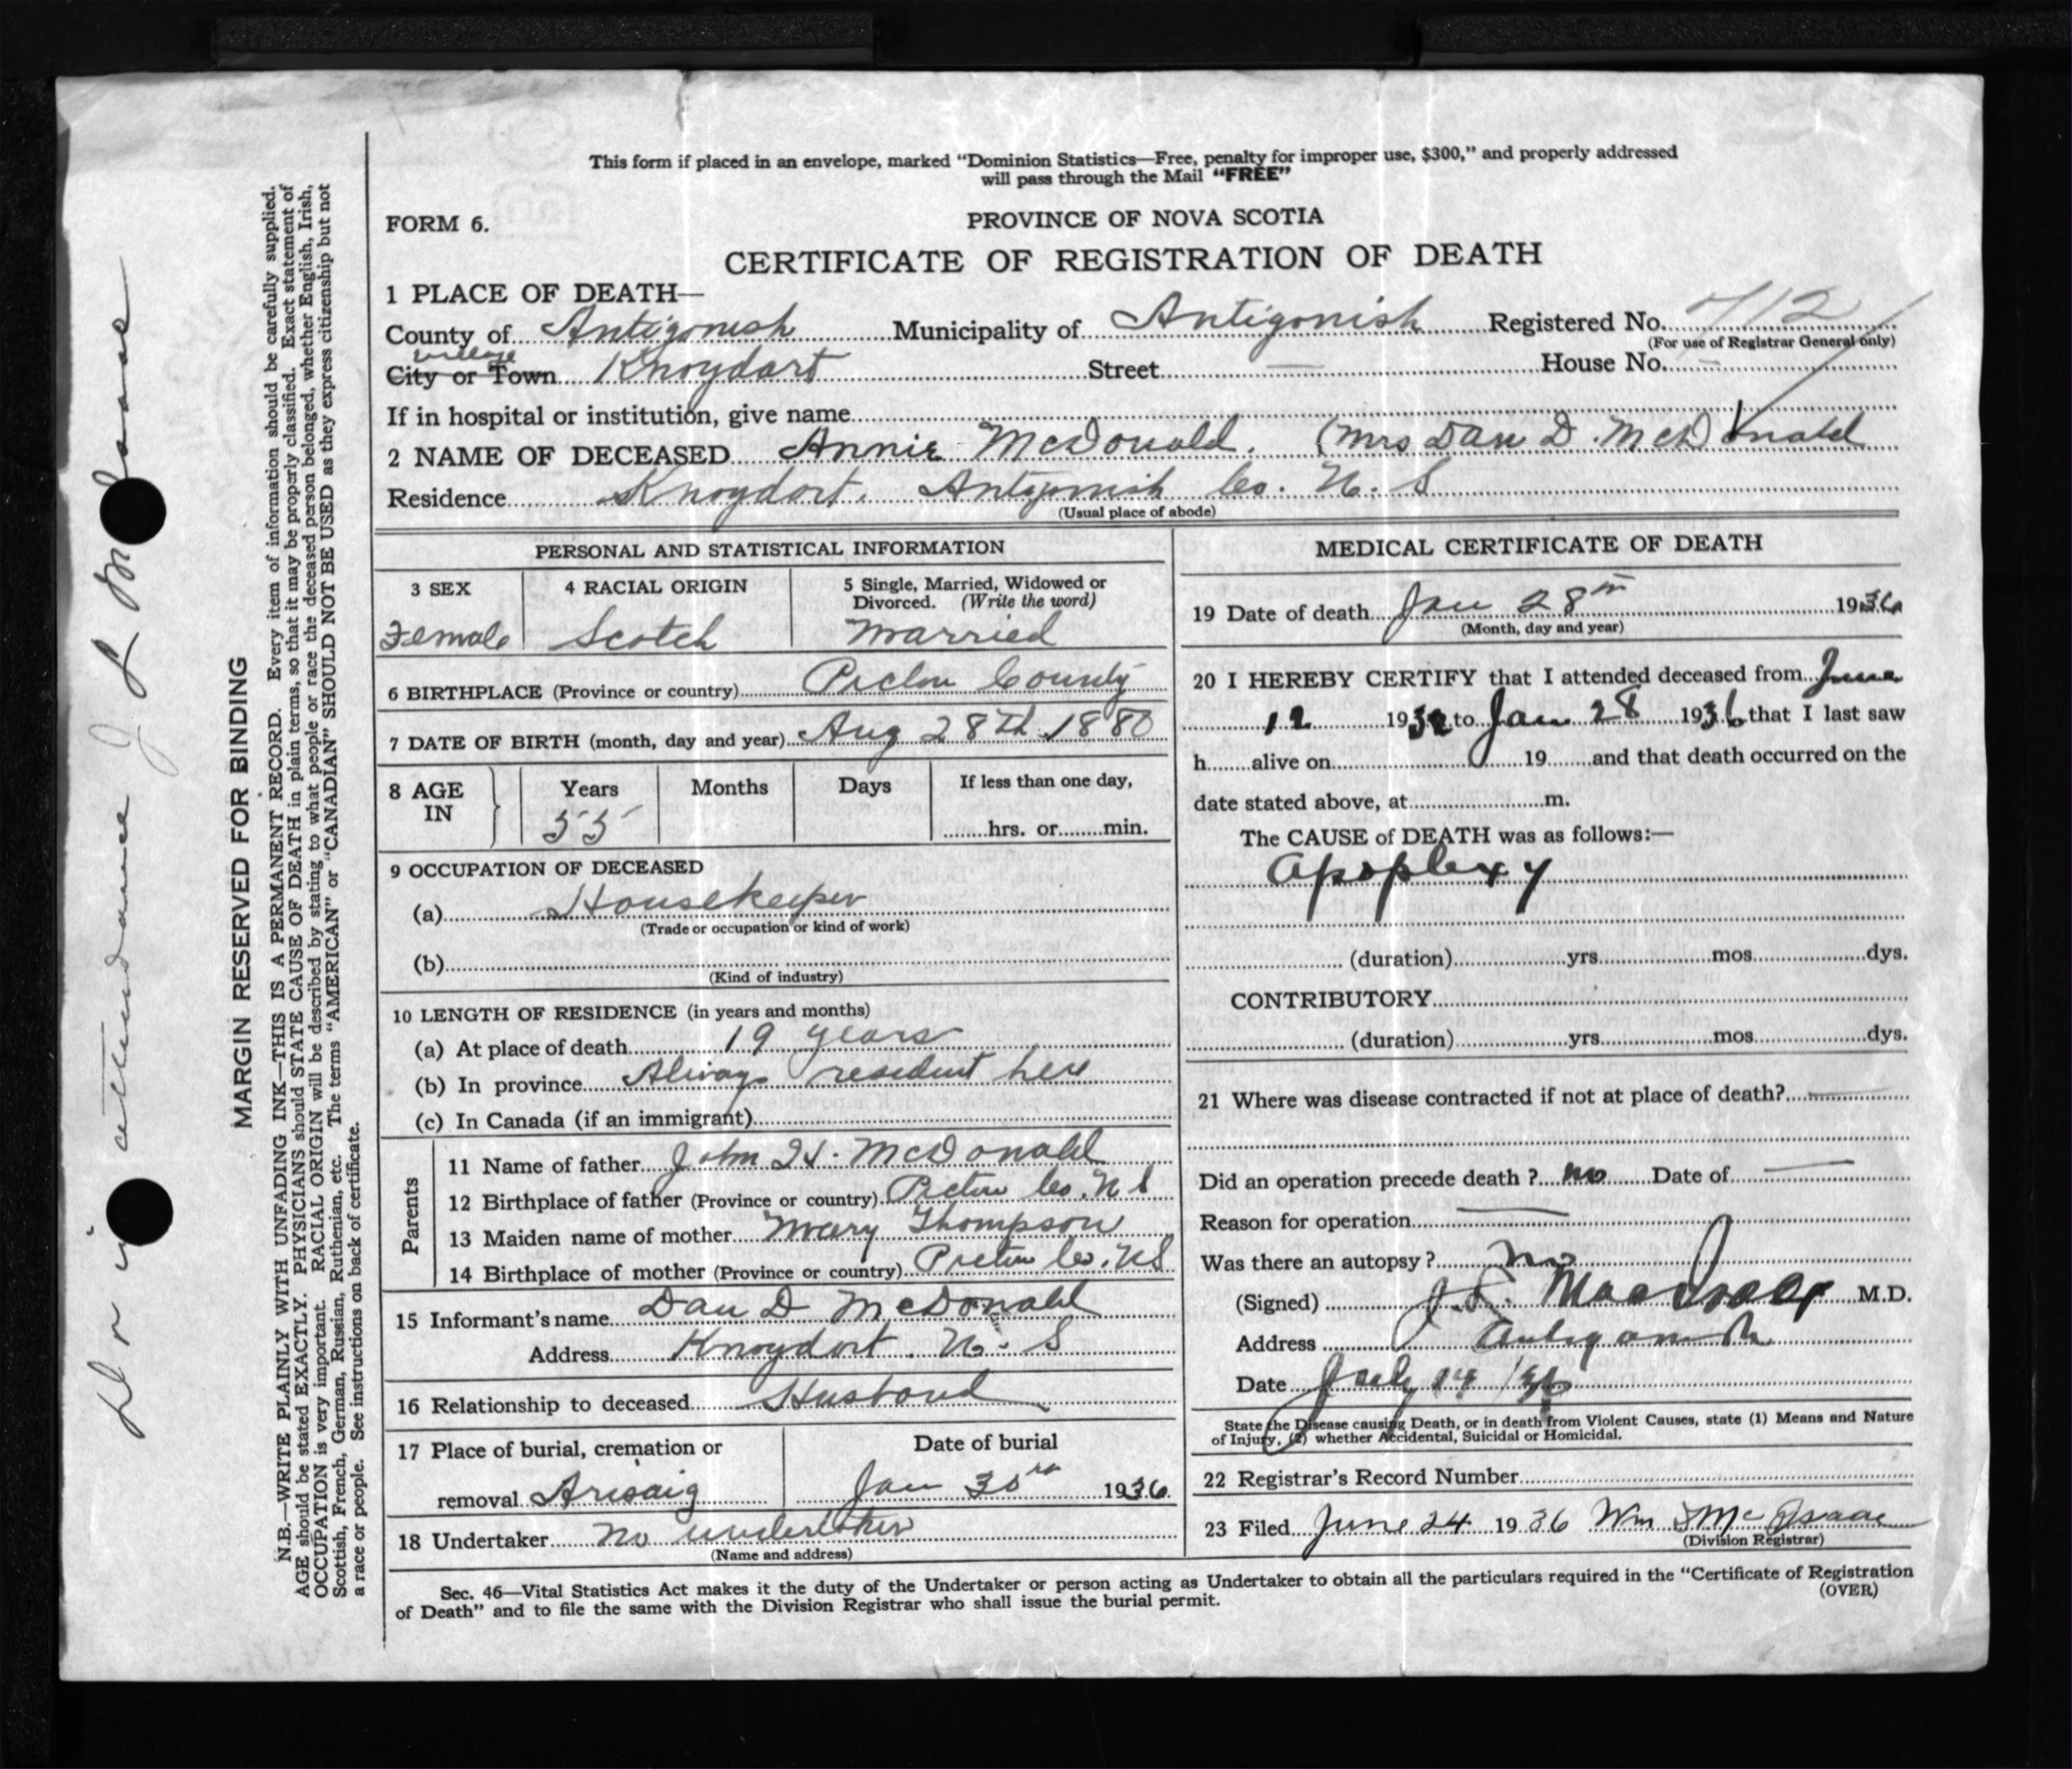 This form if placed in an envelope, marked “Dominion Statistics—Free, penalty for improper use, $300,” and properly addressed
will pass through the Mail “FREE”
FORM 6.
PROVINCE OF NOVA SCOTIA
CERTIFICATE OF REGISTRATION OF DEATH
1 PLACE OF DEATH—
County of Antigonish Municipality of Antigonish Registered No. 712
(For use of Registrar General only)
village
City or Town Knoydart Street — House No. —
If in hospital or institution, give name
2 NAME OF DECEASED Annie McDonald. (Mrs Dan D. McDonald
Residence Knoydort. Antigonish Co. N. S
(Usual place of abode)
PERSONAL AND STATISTICAL INFORMATION
3 SEX
Female
4 RACIAL ORIGIN
Scotch
5 Single, Married, Widowed or
Divorced. (Write the word)
Married
6 BIRTHPLACE (Province or country) Pictou County
7 DATE OF BIRTH (month, day and year) Aug 28th 1880
8 AGE IN
Years Months Days If less than one day,
55 hrs. or min.
9 OCCUPATION OF DECEASED
(a) Housekeeper
(Trade or occupation or kind of work)
(b)
(Kind of industry)
10 LENGTH OF RESIDENCE (in years and months)
(a) At place of death 19 years
(b) In province Always resident here
(c) In Canada (if an immigrant)
Parents
11 Name of father John H. McDonald
12 Birthplace of father (Province or country) Pictou Co. N S
13 Maiden name of mother Mary Thompson
14 Birthplace of mother (Province or country) Pictou Co. NS
15 Informant's name Dan D McDonald
Address Knoydort. N. S
16 Relationship to deceased Husband
17 Place of burial, cremation or
removal Arisaig
Date of burial
Jan 30 1936
18 Undertaker No undertaker
(Name and address)
MEDICAL CERTIFICATE OF DEATH
19 Date of death Jan 28th 1936
(Month, day and year)
20 I HEREBY CERTIFY that I attended deceased from June
12 19 to Jan 28 1936 that I last saw
h alive on 19 and that death occurred on the
date stated above, at m.
The CAUSE of DEATH was as follows:—
Apoplexy
(duration) yrs. mos. dys.
CONTRIBUTORY
(duration) yrs. mos. dys.
21 Where was disease contracted if not at place of death? —
Did an operation precede death ? no Date of —
Reason for operation —
Was there an autopsy ? no
(Signed) J.L. MacIsaac M.D.
Address Antigonish
Date July 14 /36
State the Disease causing Death, or in death from Violent Causes, state (1) Means and Nature
of Injury, (2) whether Accidental, Suicidal or Homicidal.
22 Registrar's Record Number
23 Filed June 24 1936 Wm McIsaac
(Division Registrar)
Sec. 46—Vital Statistics Act makes it the duty of the Undertaker or person acting as Undertaker to obtain all the particulars required in the “Certificate of Registration
of Death” and to file the same with the Division Registrar who shall issue the burial permit.
(OVER)
MARGIN RESERVED FOR BINDING
N.B.—WRITE PLAINLY WITH UNFADING INK—THIS IS A PERMANENT RECORD. Every item of information should be carefully supplied.
AGE should be stated EXACTLY. PHYSICIANS should STATE CAUSE OF DEATH in plain terms, so that it may be properly classified. Exact statement of
OCCUPATION is very important. RACIAL ORIGIN will be described by stating to what people or race the deceased person belonged, whether English, Irish,
Scottish, French, German, Russian, Ruthenian, etc. The terms “AMERICAN” or “CANADIAN” SHOULD NOT BE USED as they express citizenship but not
a race or people. See instructions on back of certificate.
Dr in attendance J L McIsaac